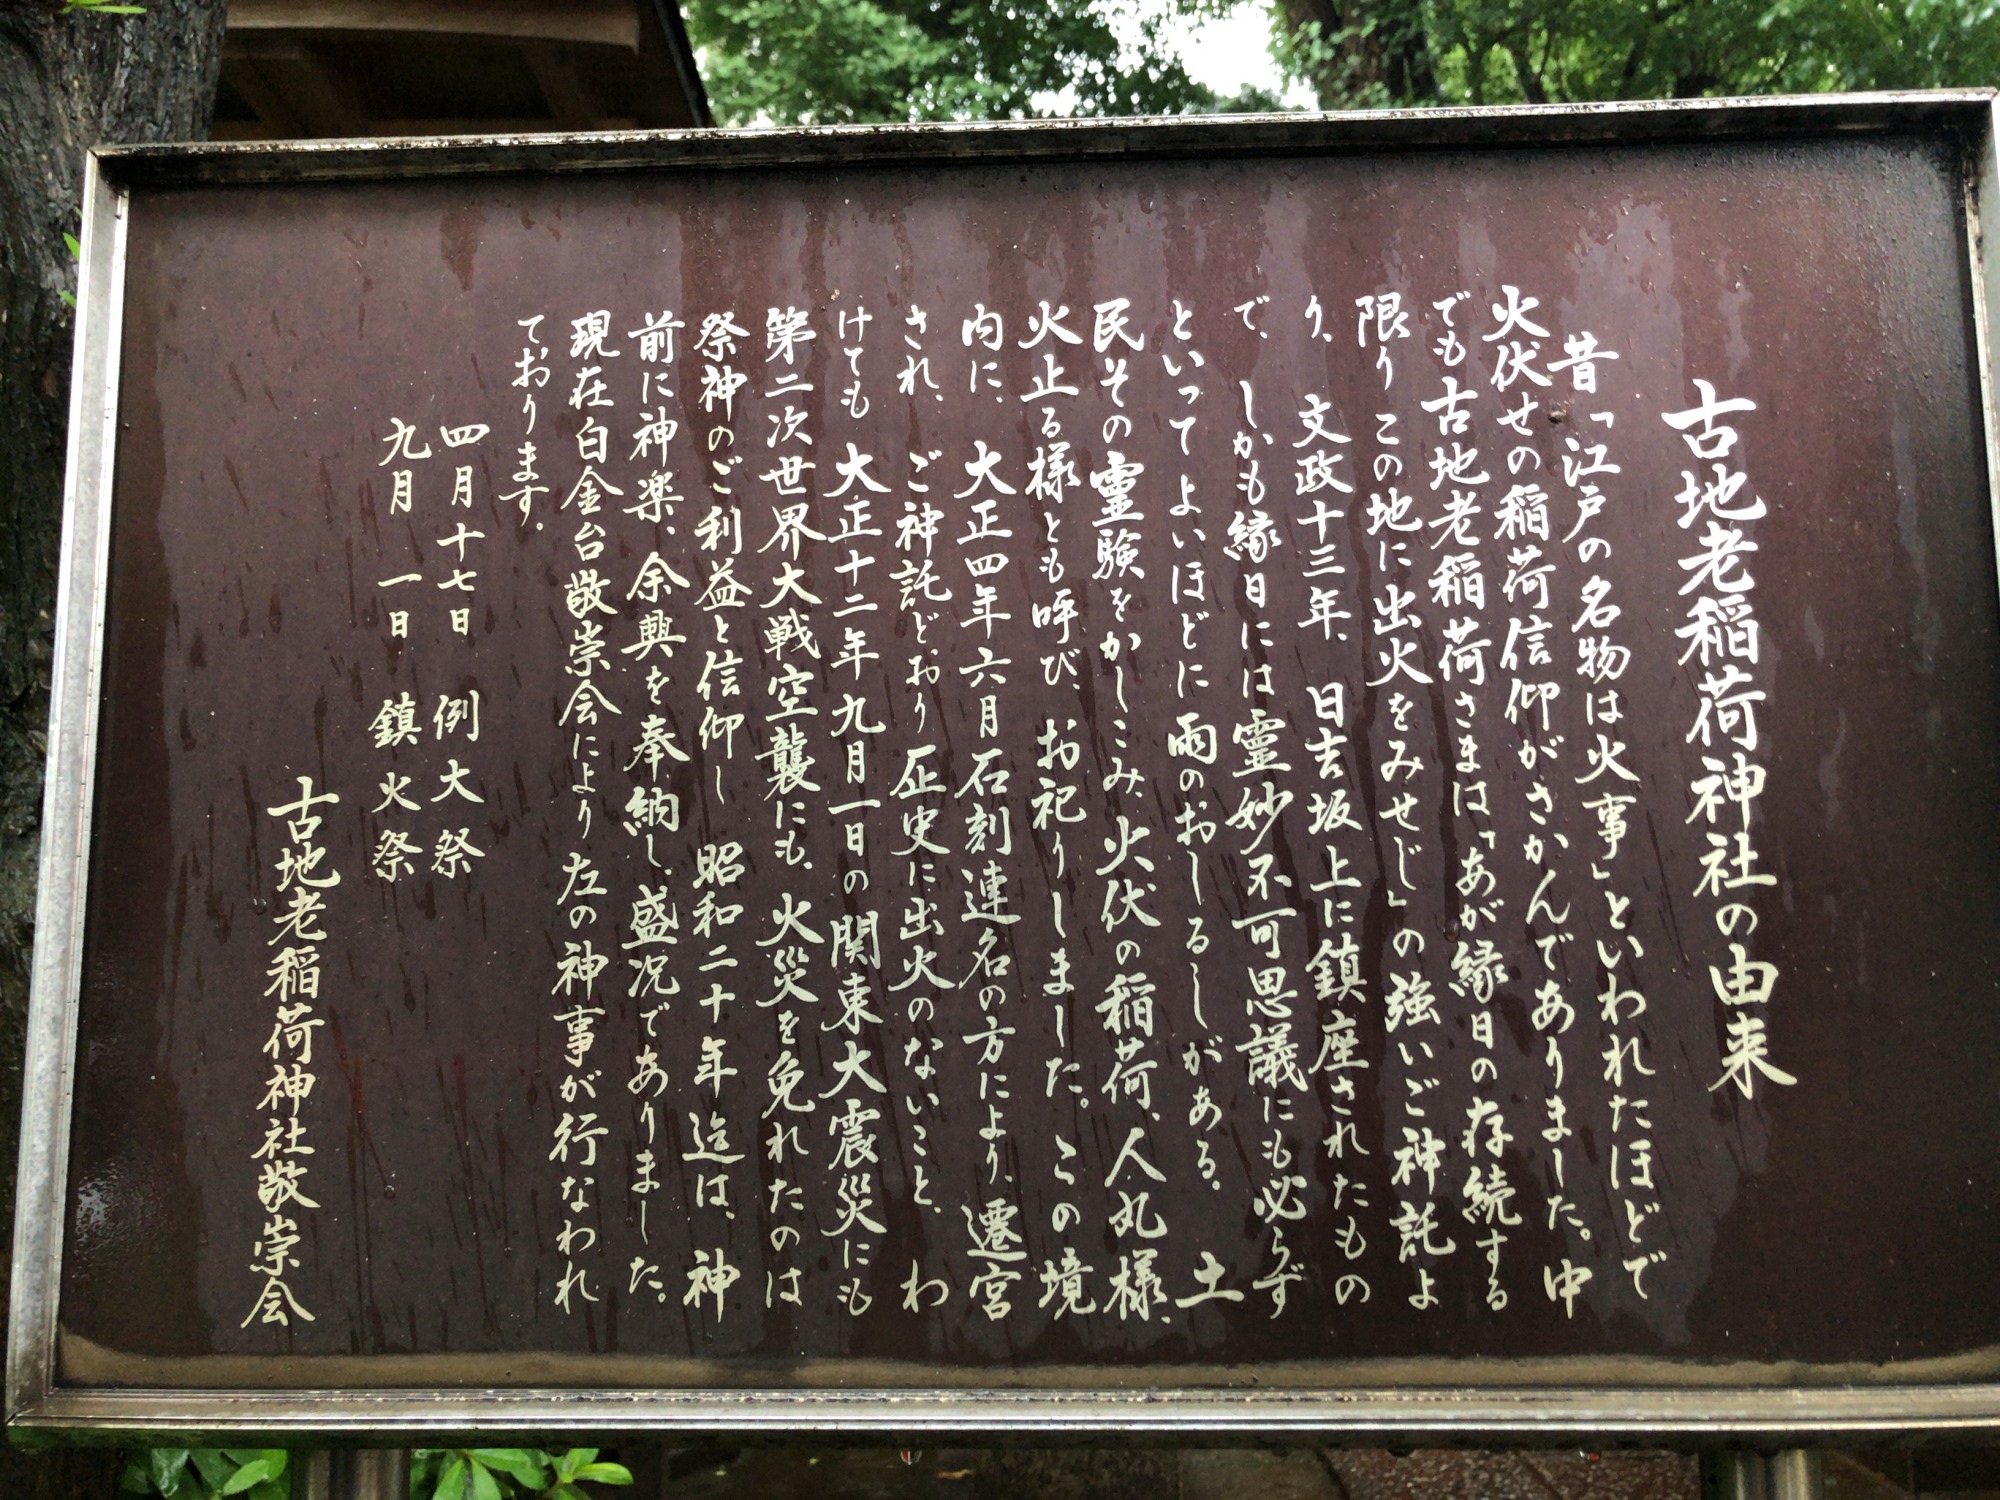 古地老稲荷神社の由来
昔「江戸の名物は火事」といわれたほどで
火伏せの稲荷信仰がさかんでありました。中
でも古地老稲荷さまは「あが縁日の存続する
限りこの地に出火をみせじ」の強いご神託よ
り、文政十三年、日吉坂上に鎮座されたもの
で、しかも縁日には霊妙不可思議にも必らず
といってよいほどに雨のおしるしがある。土
民その霊験をかしこみ、火伏の稲荷、人丸様、
火止る様とも呼び、お祀りしました。この境
内に、大正四年六月石刻連名の方により、遷宮
され、ご神託どおり正史に出火のないこと、わ
けても大正十二年九月一日の関東大震災にも
第二次世界大戦空襲にも、火災を免れたのは
祭神のご利益と信仰し 昭和二十年迄は、神
前に神楽、余興を奉納し、盛況でありました。
現在白金台敬崇会により左の神事が行なわれ
ております。
四月十七日 例大祭
九月 一日 鎮火祭
古地老稲荷神社敬崇会